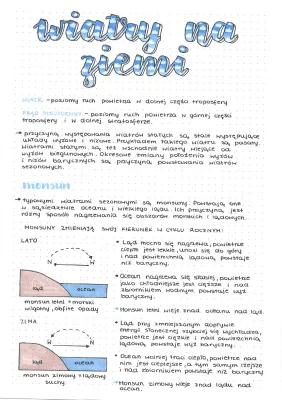 wiatry na
ziemi
WIATR - poziomy ruch powietrza w dolnej części troposfery
PRĄD STRUMIENIOWY - poziomy ruch powietrza w górnej części
troposfery i w dolnej stratosferze.
→ przyczyną występowania wiatrów stałych są stale występujące
układy wyżowe i niżowe. Przykładem takiego wiatru są pasaty.
Wiatrami stałymi są też wschodnie wiatry wiejące od
wyżów biegunowych. Okresowe zmiany położenia wyżów
i niżów barycznych są przyczyną powstawania wiatrów
sezonowych.
monsun
→ typowymi wiatrami sezonowymi są monsuny. Powstają one
w sąsiedztwie oceanu i wielkiego lądu. Ich przyczyną jest
różny sposób nagrzewania się obszarów morskich i lądowych.
MONSUNY ZMIENIAJĄ SWÓJ KIERUNEK W CYKLU ROCZNYM!
LATO
N W
ląd ocean
monsun letni = morski
wilgotny, obfite opady
• Ląd mocno się nagrzewa, powietrze
ciepłe jest lekkie, unosi się do góry
i nad powierzchnią lądową, powstaje
niż baryczny.
• Ocean nagrzewa się słabiej, powietrze
jako chłodniejsze jest cięższe i nad
zbiornikiem wodnym powstaje wyż
baryczny.
• Monsun letni wieje znad oceanu nad ląd.
ZIMA
W N
ląd ocean
monsun zimowy = lądowy
suchy
• Ląd przy zmniejszonym dopływie
energii słonecznej szybciej się wychładza,
powietrze jest cięższe i nad powierzchnią
lądową, powstaje wyż baryczny.
• Ocean wolniej traci ciepło, powietrze nad
nim jest cieplejsze, a tym samym rzejsze
i nad zbiornikiem powstaje niż baryczny.
→ Monsun zimowy wieje znad lądu nad
ocean.